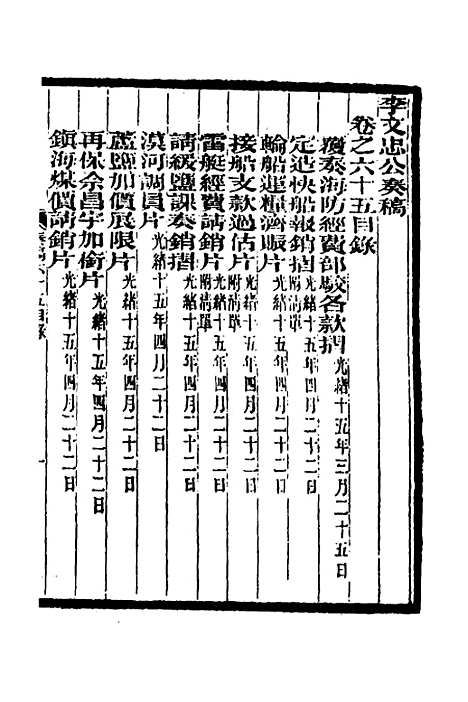 李文忠公奏稿
卷之六十五目錄
覆奏海防經費部駁各款摺光緒十五年三月二十五日
定造快船報銷摺附清單光緒十五年四月二十二日
輪船運糧濟賑片光緒十五年四月二十二日
接船支款過估片附清單光緒十五年四月二十二日
雷艇經費請銷片附清單光緒十五年四月二十二日
請緩鹽課奏銷摺光緒十五年四月二十二日
漠河調員片光緒十五年四月二十二日
蘆鹽加價展限片光緒十五年四月二十二日
再保余昌宇加銜片光緒十五年四月二十二日
鎮海煤價請銷片光緒十五年四月二十二日
奏稿六十五目錄
一